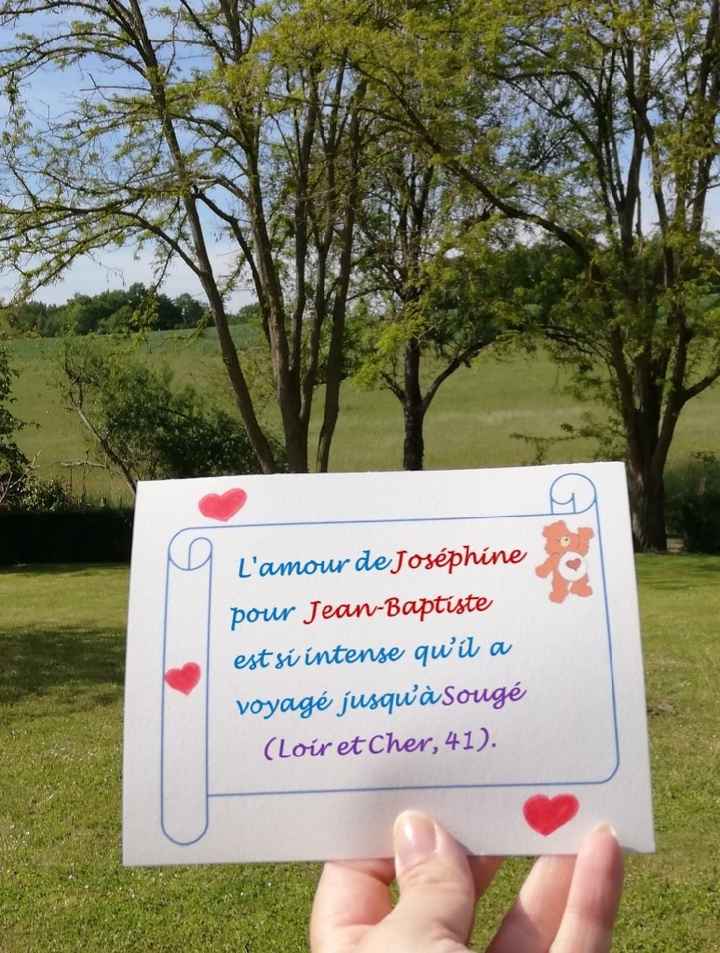 L'amour de Joséphine
pour Jean-Baptiste
est si intense qu'il a
voyagé jusqu'à Sougé
(Loir et Cher, 41).